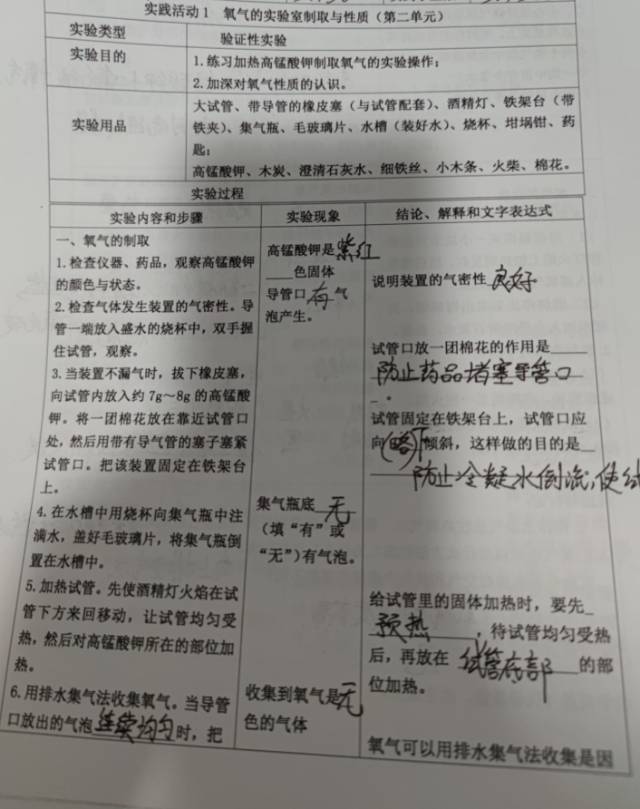 实践活动1 氧气的实验室制取与性质（第二单元）
实验类型 验证性实验
实验目的 1.练习加热高锰酸钾制取氧气的实验操作；
2.加深对氧气性质的认识。
实验用品 大试管、带导管的橡皮塞（与试管配套）、酒精灯、铁架台（带
铁夹）、集气瓶、毛玻璃片、水槽（装好水）、烧杯、坩埚钳、药
匙；
高锰酸钾、木炭、澄清石灰水、细铁丝、小木条、火柴、棉花。
实验过程
实验内容和步骤 实验现象 结论、解释和文字表达式
一、氧气的制取
1.检查仪器、药品，观察高锰酸钾
的颜色与状态。
2.检查气体发生装置的气密性。导
管一端放入盛水的烧杯中，双手握
住试管，观察。
3.当装置不漏气时，拔下橡皮塞，
向试管内放入约7g～8g的高锰酸
钾。将一团棉花放在靠近试管口
处，然后用带有导气管的塞子塞紧
试管口。把该装置固定在铁架台
上。
4.在水槽中用烧杯向集气瓶中注
满水，盖好毛玻璃片，将集气瓶倒
置在水槽中。
5.加热试管。先使酒精灯火焰在试
管下方来回移动，让试管均匀受
热，然后对高锰酸钾所在的部位加
热。
6.用排水集气法收集氧气。当导管
口放出的气泡连续均匀时，把
高锰酸钾是紫红
色固体
导管口有气
泡产生。
集气瓶底无
（填“有”或
“无”）有气泡。
收集到氧气是无
色的气体
说明装置的气密性良好
试管口放一团棉花的作用是
防止药品堵塞导管口
。
试管固定在铁架台上，试管口应
向(略)下倾斜，这样做的目的是
防止冷凝水倒流，使
给试管里的固体加热时，要先
预热，待试管均匀受热
后，再放在试管底部的部
位加热。
氧气可以用排水集气法收集是因